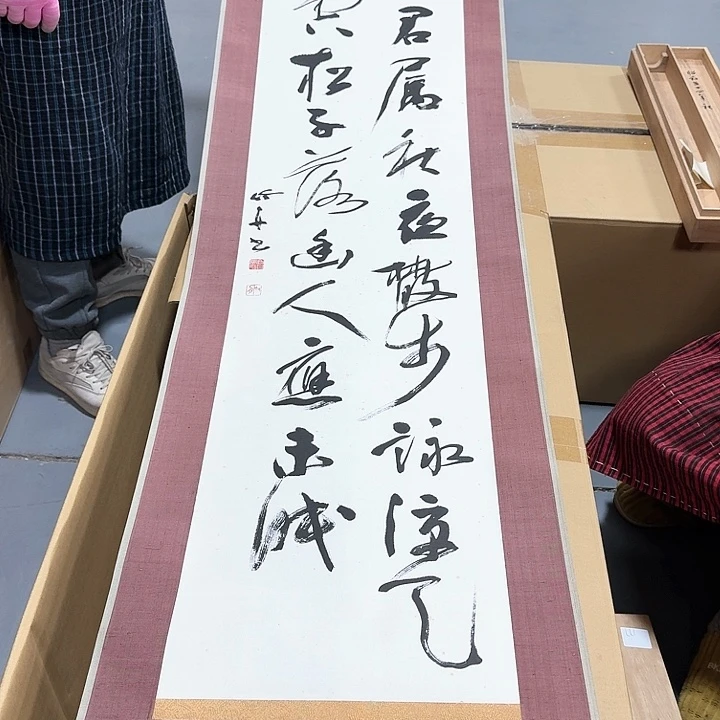 君属秋夜散步詠涼天
松子落幽人應未眠